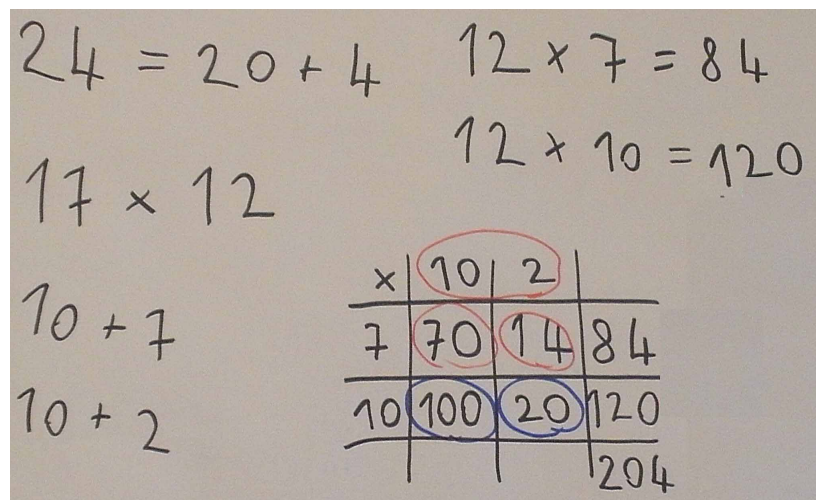 24 = 20 + 4
17 × 12
10 + 7
10 + 2
12 × 7 = 84
12 × 10 = 120
× 10 2
7 70 14 84
10 100 20 120
204